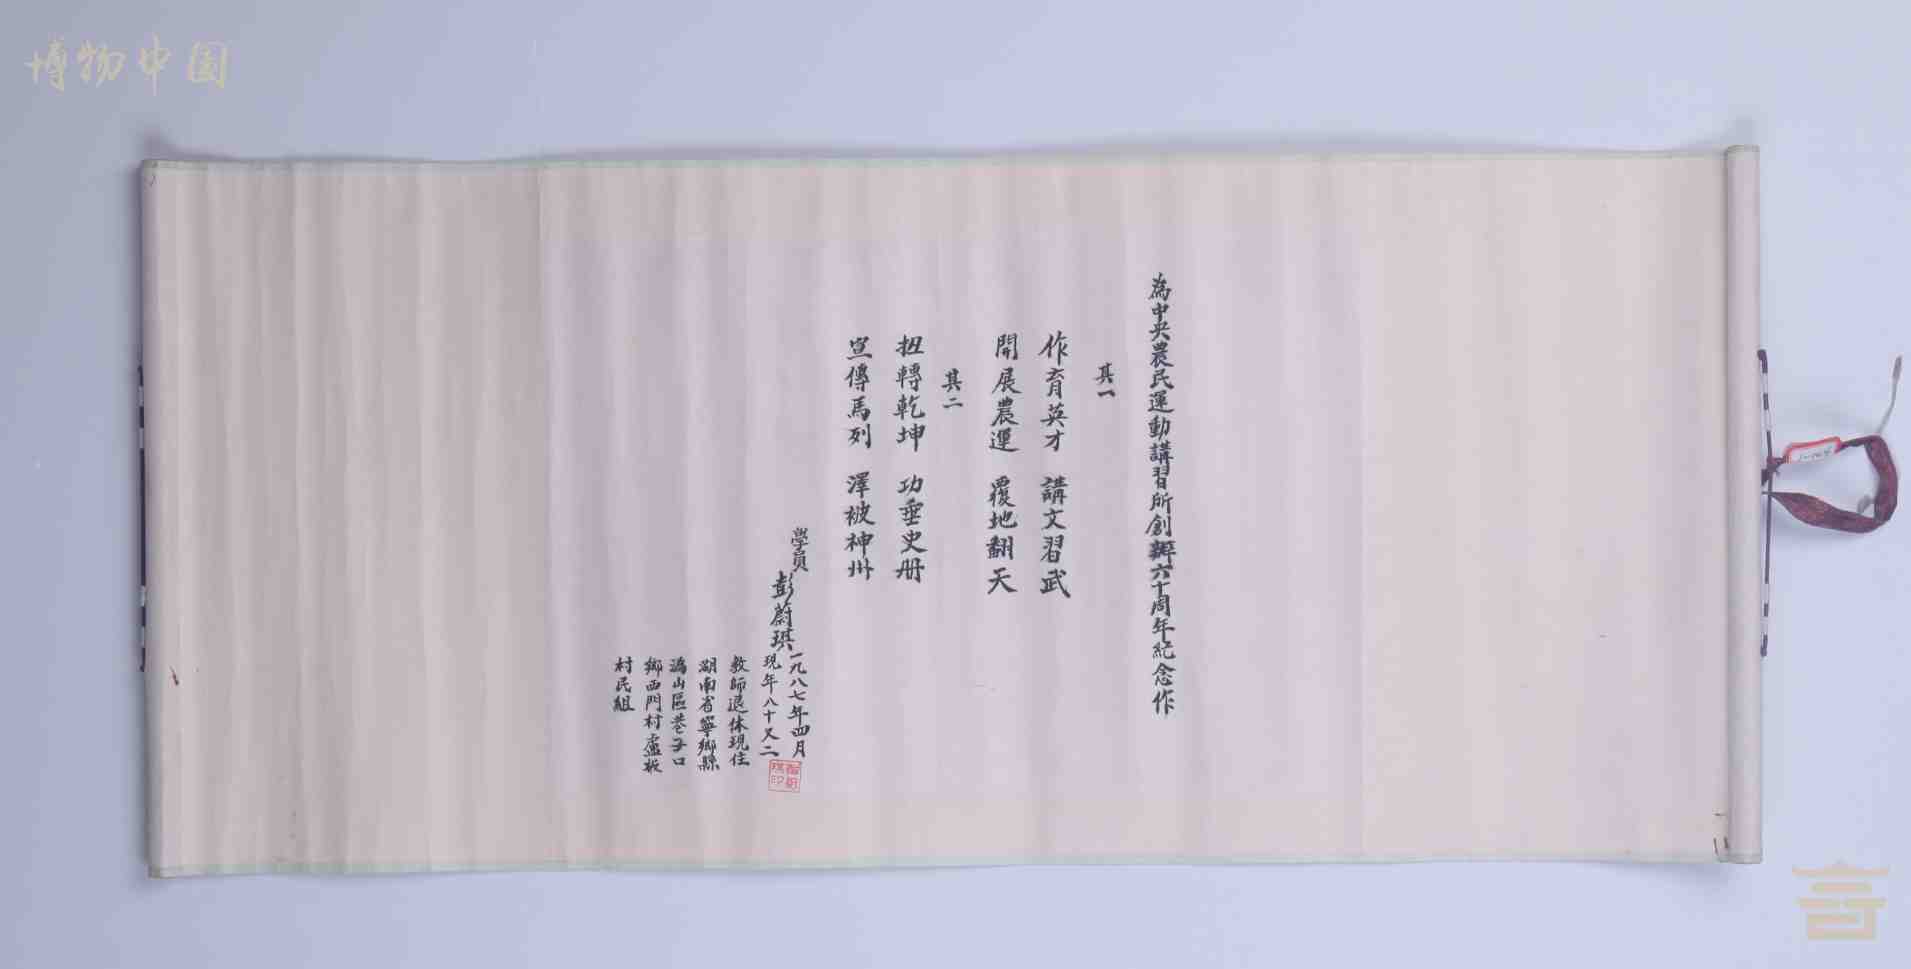 博物中国
為中央農民運動講習所創辦六十周年紀念作
其一
作育英才 講文習武
開展農運 覆地翻天
其二
扭轉乾坤 功垂史册
宣傳馬列 澤被神州
學員彭蔚琪
一九八七年四月
現年八十又二
教師退休現住
湖南省寧鄉縣
溈山區巷子口
鄉西門村盧板
村民組